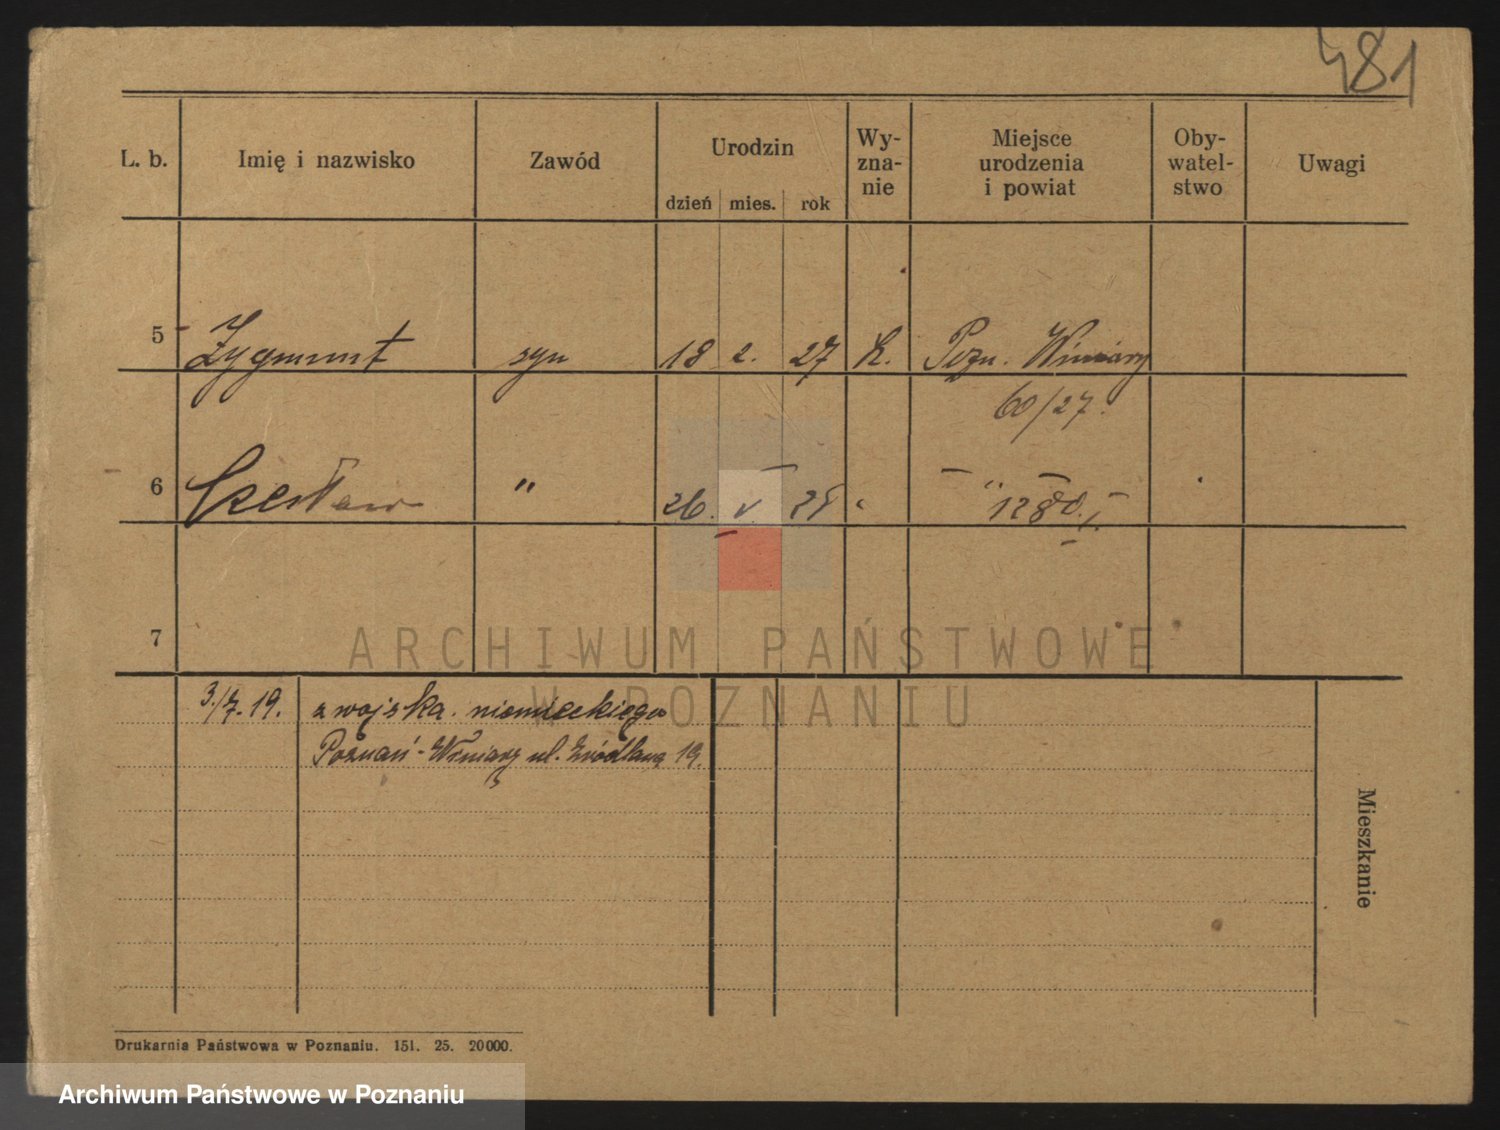 481
L. b. Imię i nazwisko Zawód Urodzin Wy-zna-nie Miejsce urodzenia i powiat Oby-watel-stwo Uwagi
dzień mies. rok
5 Zygmunt syn 18 2. 27 k. Pozn. Winiary
60/27.
6 Czesław " 26. V. " 128
7
ARCHIWUM PAŃSTWOWE
W POZNANIU
3./7. 19. z wojska niemieckiego
Poznań-Winiary ul. Źródlana 19.
Mieszkanie
Drukarnia Państwowa w Poznaniu. 151. 25. 20000.
Archiwum Państwowe w Poznaniu